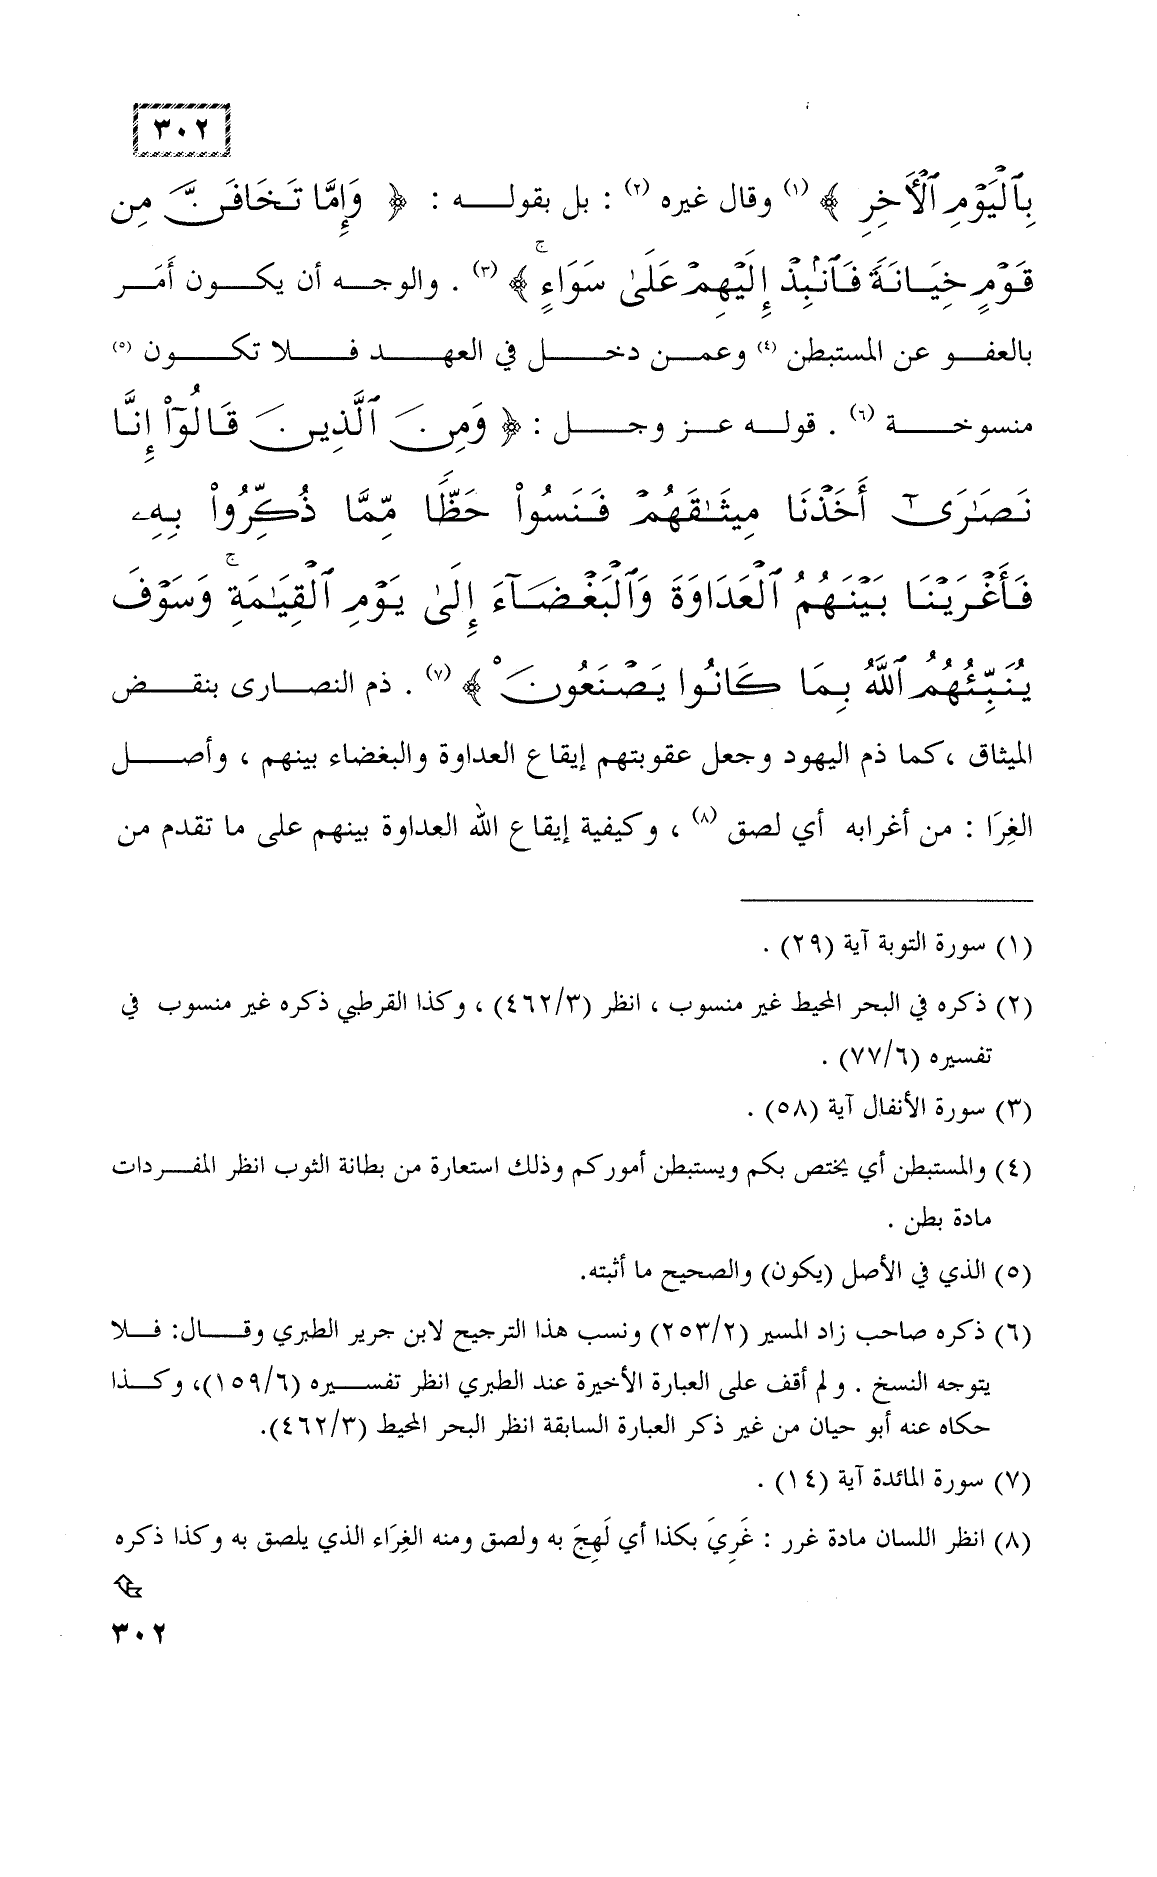 ٣٠٢
بِٱلۡيَوۡمِ ٱلۡأَخِرِ ﴾ (١) وقال غيره (٢) : بل بقولـــه : ﴿ وَإِمَّا تَخَافَنَّ مِن
قَوۡمٍ خِيَانَةً فَٱنۢبِذۡ إِلَيۡهِمۡ عَلَىٰ سَوَآءٍۚ ﴾ (٣) . والوجـه أن يكـون أَمَر
بالعفو عن المستبطن (٤) وعمـن دخـل في العهـد فـلا تكـون (٥)
منسوخـة (٦) . قولـه عـز وجـل : ﴿ وَمِنَ ٱلَّذِينَ قَالُوٓاْ إِنَّا
نَصَٰرَىٰٓ أَخَذۡنَا مِيثَٰقَهُمۡ فَنَسُواْ حَظّٗا مِّمَّا ذُكِّرُواْ بِهِۦ
فَأَغۡرَيۡنَا بَيۡنَهُمُ ٱلۡعَدَاوَةَ وَٱلۡبَغۡضَآءَ إِلَىٰ يَوۡمِ ٱلۡقِيَٰمَةِۚ وَسَوۡفَ
يُنَبِّئُهُمُ ٱللَّهُ بِمَا كَانُوا يَصۡنَعُونَ ﴾ (٧) . ذم النصـارى بنقـض
الميثاق ، كما ذم اليهود وجعل عقوبتهم إيقاع العداوة والبغضاء بينهم ، وأصـل
الغِرَا : من أغرابه أي لصق (٨) ، وكيفية إيقاع الله العداوة بينهم على ما تقدم من
(١) سورة التوبة آية (٢٩) .
(٢) ذكره في البحر المحيط غير منسوب ، انظر (٤٦٢/٣) ، وكذا القرطبي ذكره غير منسوب في
تفسيره (٧٧/٦) .
(٣) سورة الأنفال آية (٥٨) .
(٤) والمستبطن أي يختص بكم ويستبطن أموركم وذلك استعارة من بطانة الثوب انظر المفـردات
مادة بطن .
(٥) الذي في الأصل (يكون) والصحيح ما أثبته.
(٦) ذكره صاحب زاد المسير (٢٥٣/٢) ونسب هذا الترجيح لابن جرير الطبري وقـال: فـلا
يتوجه النسخ . ولم أقف على العبارة الأخيرة عند الطبري انظر تفسـيره (١٥٩/٦)، وكـذا
حكاه عنه أبو حيان من غير ذكر العبارة السابقة انظر البحر المحيط (٤٦٢/٣).
(٧) سورة المائدة آية (١٤) .
(٨) انظر اللسان مادة غرر : غَرِيَ بكذا أي لَهِجَ به ولصق ومنه الغِرَاء الذي يلصق به وكذا ذكره
٣٠٢